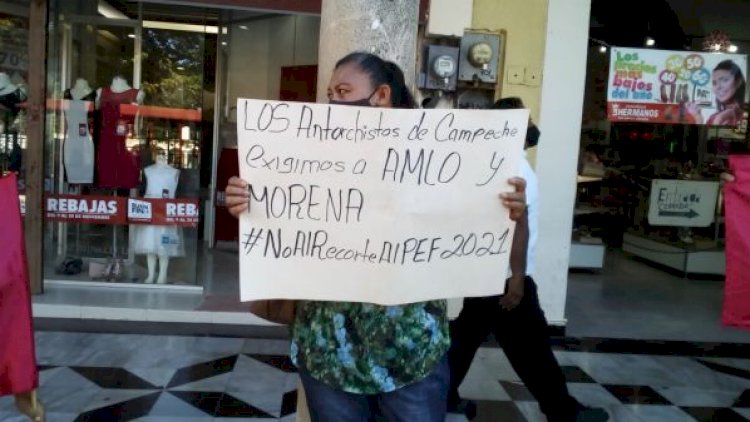 LOS Antorchistas de Campeche
exigimos a AMLO Y
MORENA
#NoAlRecorteAlPEF2021
REBAJAS
BUEN FIN
REBA
Los
precios
más
bajos
del año
3HERMANOS
Entrada